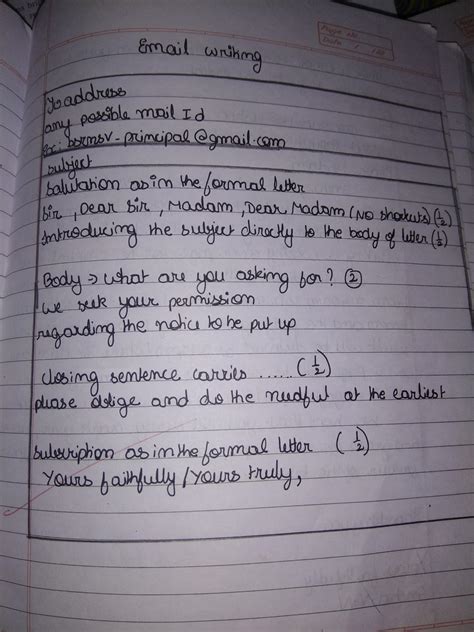 Page No.
Date
Email writing
To address
any possible mail Id
Ex: bsrmsv-principal@gmail.com
Subject
Salutation as in the formal letter
Sir, Dear Sir, Madam, Dear Madam (No shortcuts) (1/2)
Introducing the subject directly to the body of letter (1/2)
Body ⇒ What are you asking for? (2)
we seek your permission
regarding the notice to be put up
closing sentence carries ...... (1/2)
please oblige and do the needful at the earliest
Subscription as in the formal letter (1/2)
Yours faithfully / Yours truly,